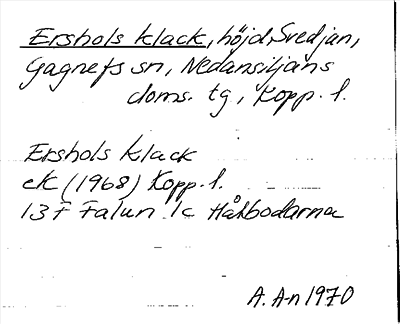 Ershols klack, höjd, Svedjan,
Gagnefs sn, Nedansiljans
doms. tg, Kopp. l.
Ershols klack
ek (1968) Kopp. l.
13 F Falun 1c Håkbodarna
A. An 1970